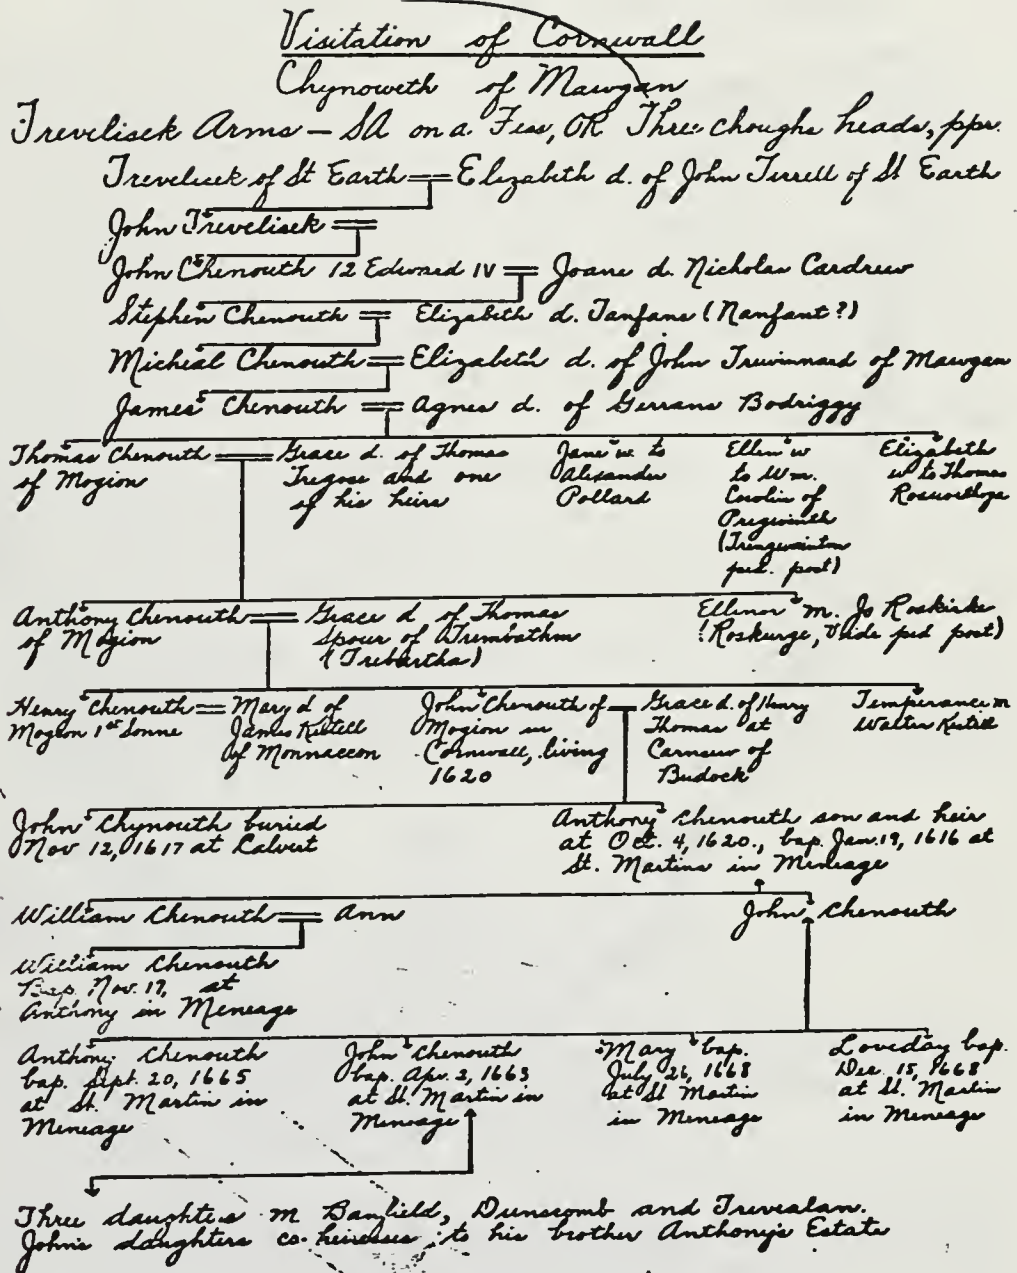 Visitation of Cornwall
Chynoweth of Mawgan
Trevelisek Arms — SA on a Fess, OR Three choughs heads, ppr.
Trevelisek of St Earth == Elizabeth d. of John Terrell of St Earth
John Trevelisek ==
John Chenouth 12 Edward IV == Joane d. Nicholas Cardrew
Stephen Chenouth == Elizabeth d. Tanfans (Nanfant?)
Micheal Chenouth == Elizabeth d. of John Trewinnard of Mawgan
James Chenouth == Agnes d. of Gerrans Bodriggy
Thomas Chenouth == Grace d. of Thomas
of Mogion
Tregose and one
of his heirs
Jane w. to
Alexander
Pollard
Ellen w
to Wm.
Cowlin of
Pregwinth
(Trengwainton
ped. post)
Elizabeth
w to Thomas
Rosworthga
Anthony Chenouth == Grace d of Thomas
of Mogion
Spour of Trembathm
(Trebartha)
Ellinor m. Jo Roskirke
(Roskurge, Vide ped post)
Henry Chenouth == Mary d of
Mogion 1st Sonne
James Kistell
of Monnaccon
John Chenouth of == Grace d. of Henry
Mogion in
Cornwall, living
1620
Thomas at
Carnsew of
Budock
Temperance m
Walter Kistell
John Chynouth buried
Nov 12, 1617 at Calvert
Anthony Chenouth son and heir
at Oct. 4, 1620., bap. Jan. 19, 1616 at
St. Martins in Meneage
William Chenouth == Ann
John Chenouth
William Chenouth
Bap. Nov. 17, at
Anthony in Meneage
Anthony Chenouth
bap. Sept. 20, 1665
at St. Martin in
Meneage
John Chenouth
bap. Apr. 2, 1663
at St. Martin in
Meneage
Mary bap.
July 26, 1668
at St Martin
in Meneage
Loveday bap.
Dec. 15, 1668
at St. Martin
in Meneage
Three daughters m Banfield, Dunscomb and Trevialan.
John's daughters co-heiresses to his brother Anthony's Estate